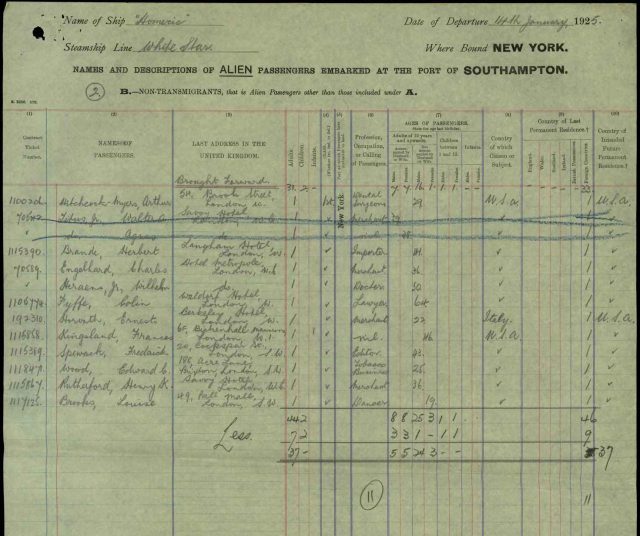 Name of Ship "Homeric"
Date of Departure 14th January, 1925.
Steamship Line White Star
Where Bound NEW YORK.
NAMES AND DESCRIPTIONS OF ALIEN PASSENGERS EMBARKED AT THE PORT OF SOUTHAMPTON.
2. B.—NON-TRANSMIGRANTS, that is Alien Passengers other than those included under A.
(1) (2) (3) (4) (5) (6) (7) (8) (9) (10)
Contract Ticket Number.
NAMES OF PASSENGERS.
LAST ADDRESS IN THE UNITED KINGDOM.
Adults Children Infants
New York
Profession, Occupation, or Calling of Passengers.
AGES OF PASSENGERS.
Adults of 12 years and upwards.
Children between 1 and 12.
Infants
Country of which Citizen or Subject.
Country of Last Permanent Residence.
England. Wales. Scotland. Ireland. Foreign Countries
Country of Intended Future Permanent Residence.
Brought Forward 31 2 - 7 7 16 1 1 - 33
Hitchcock-Myers, Arthur 54, Brook Street, London W. 1 1st Dental Surgeon 29 U.S.A. 1 U.S.A.
70542 Titus, Jr, Walter A Savoy Hotel London W.C. Merchant
" do Agnes
1115390 Brande, Herbert Langham Hotel, London, W. 1 Importer 1
70589 Engelhard, Charles Hotel Metropole, London, W.C. 1 Merchant 36 1
" Heraeus, Jr, Wilhelm do. 1 Doctor 30 1
Fyffe, Colin Waldorf Hotel London 1 Lawyer 64 1
192310 Horvath, Ernest Berkeley Hotel, London W. 1 Merchant 22 Italy. 1 U.S.A.
1116858 Kingsland, Frances 65, Bickenhall Mansions London W.1 1 nil. 46 U.S.A. 1
1115369 Spewack, Frederick 20, Cockspur St. London, S.W. 1 Editor 43 1
111847 Wood, Edward C. 180, Acre Lane, Brixton, London, S.W. 1 Tobacco Business 25 1
1115867 Rutherford, Henry K. Savoy Hotel London, W.C. 1 Merchant 36 1
1117125 Brooks, Louise 49, Pall Mall, London, S.W. 1 Dancer 19 1
44 2 8 8 25 3 1 1 46
Less. 7 2 3 3 1 - 1 1 9
37 - 5 5 24 3 - 1 37
11 11